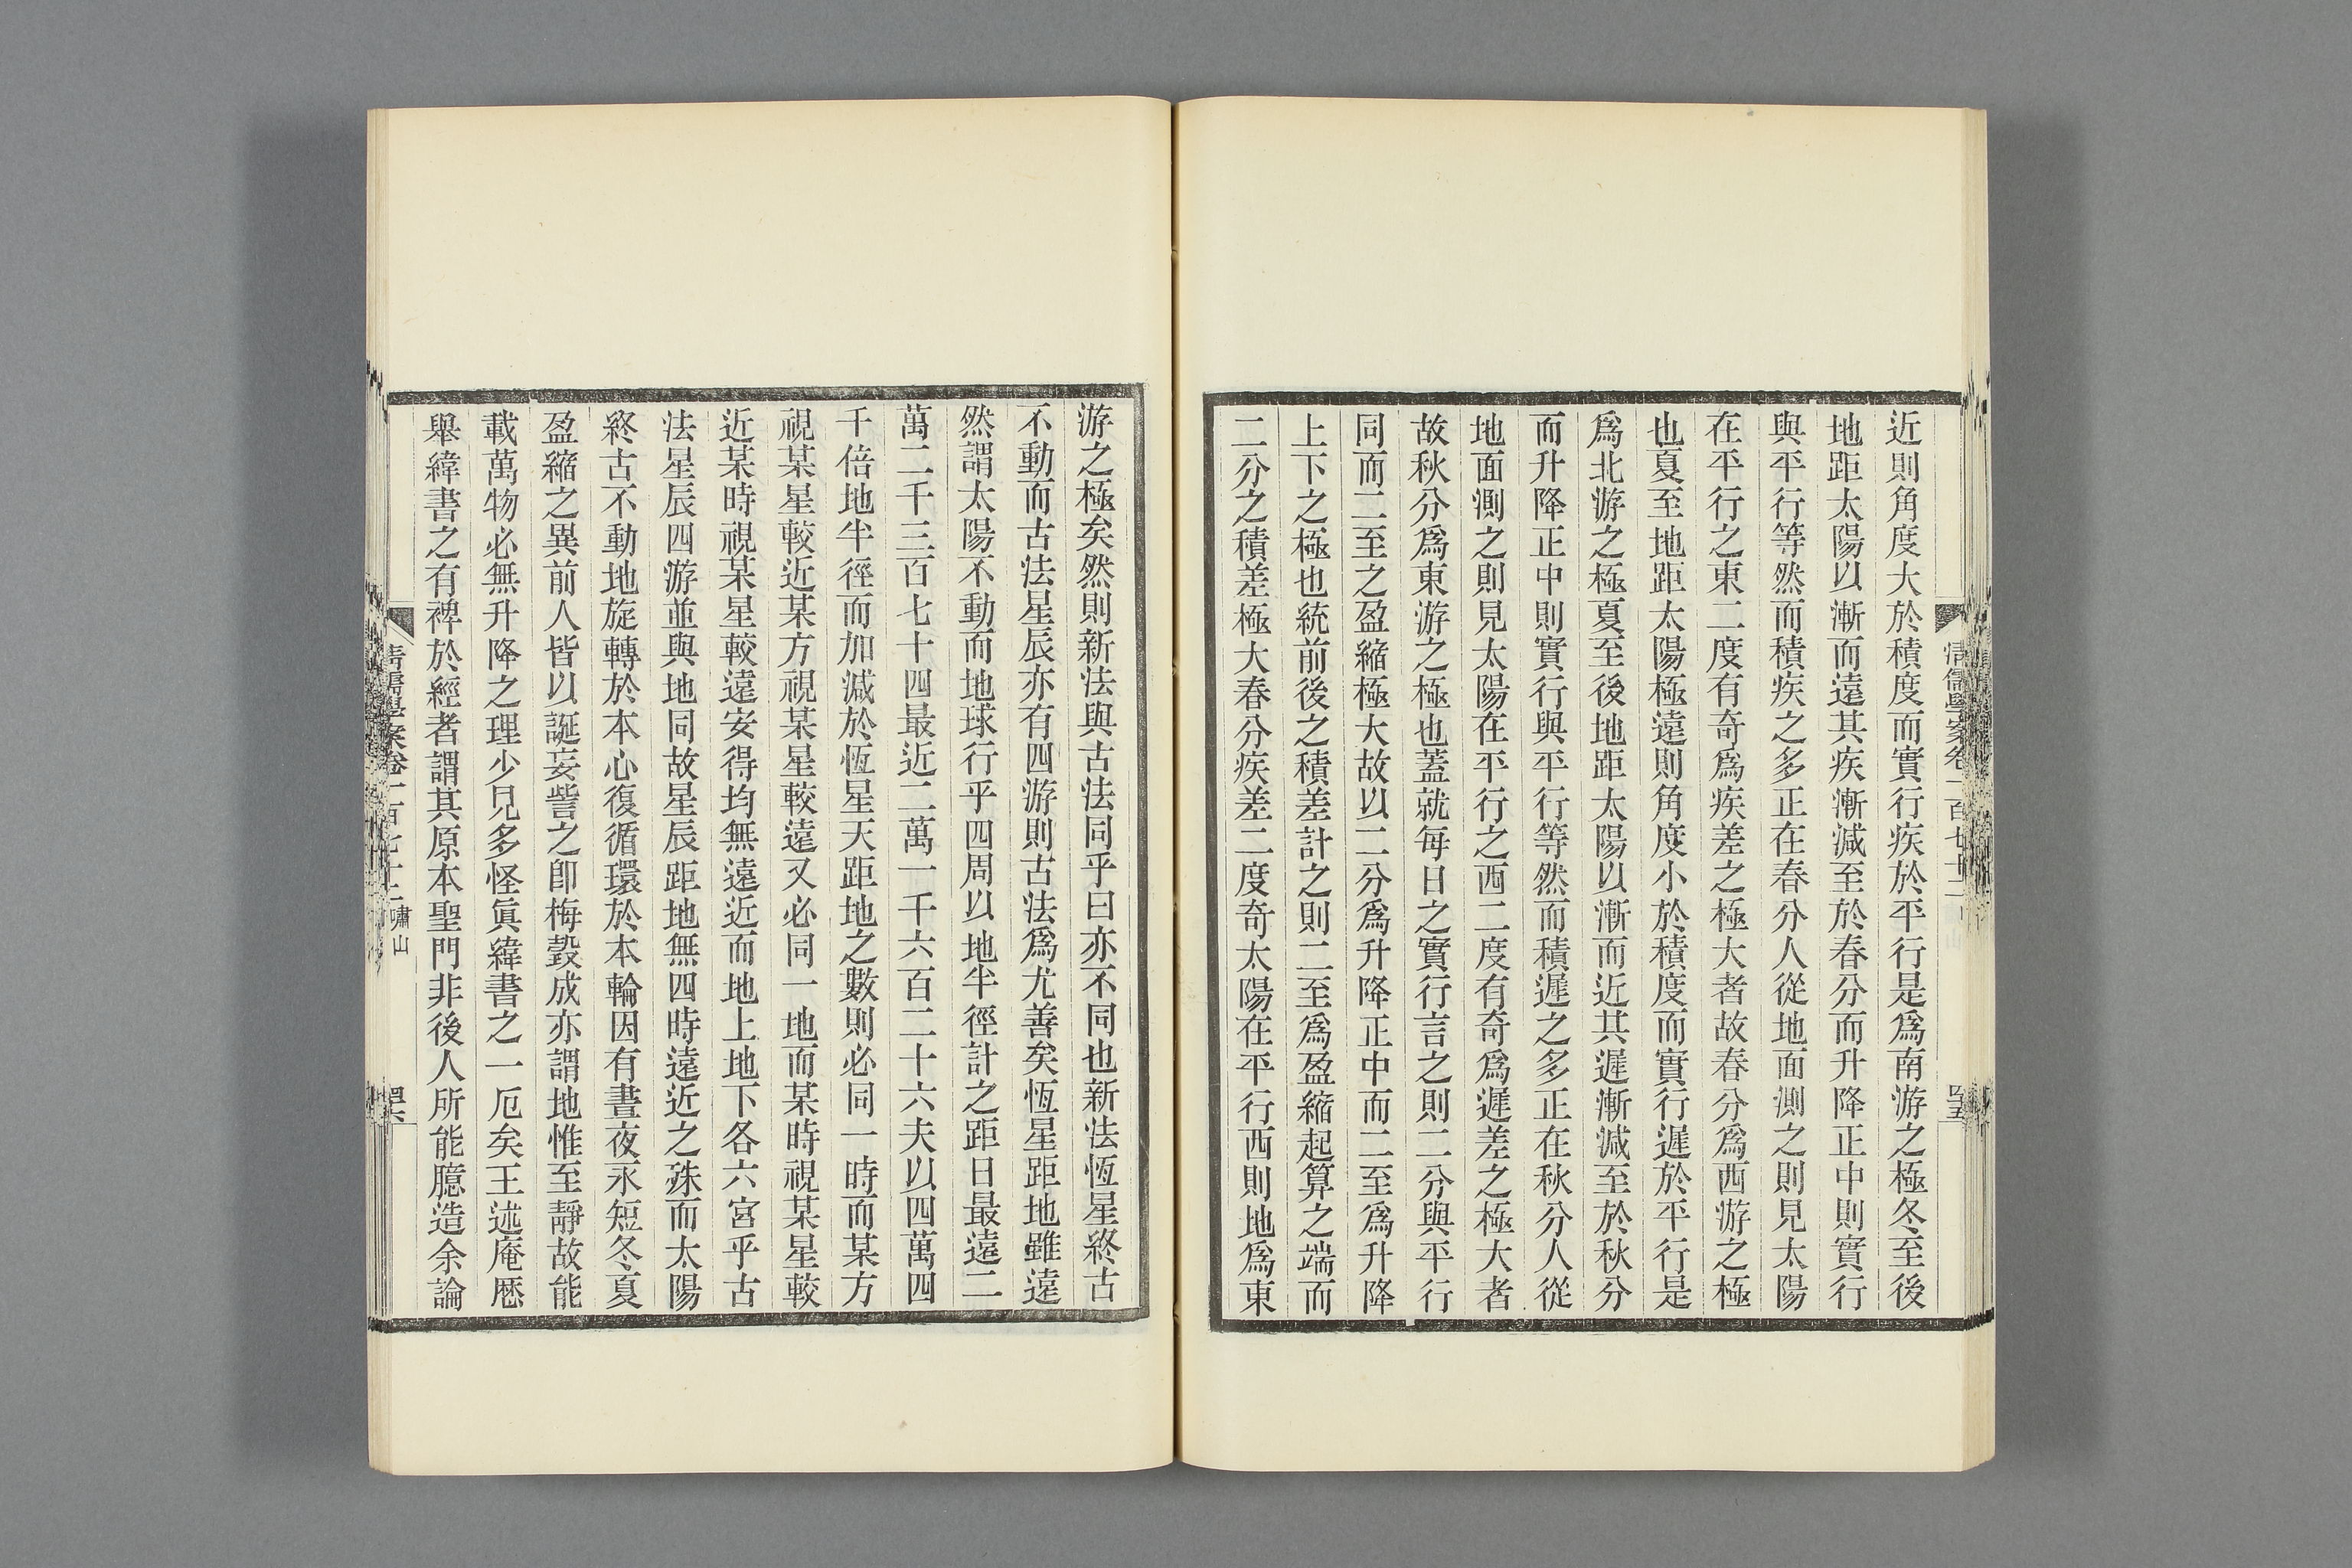 近則角度大於積度而實行疾於平行是爲南游之極冬至後
地距太陽以漸而遠其疾漸減至於春分而升降正中則實行
與平行等然而積疾之多正在春分人從地面測之則見太陽
在平行之東二度有奇爲疾差之極大者故春分爲西游之極
也夏至地距太陽極遠則角度小於積度而實行遲於平行是
爲北游之極夏至後地距太陽以漸而近其遲漸減至於秋分
而升降正中則實行與平行等然而積遲之多正在秋分人從
地面測之則見太陽在平行之西二度有奇爲遲差之極大者
故秋分爲東游之極也蓋就每日之實行言之則二分與平行
同而二至之盈縮極大故以二分爲升降正中而二至爲升降
上下之極也統前後之積差計之則二至爲盈縮起算之端而
二分之積差極大春分疾差二度奇太陽在平行西則地爲東
游之極矣然則新法與古法同乎曰亦不同也新法恆星終古
不動而古法星辰亦有四游則古法爲尤善矣恆星距地雖遠
然謂太陽不動而地球行乎四周以地半徑計之距日最遠二
萬二千三百七十四最近二萬一千六百二十六夫以四萬四
千倍地半徑而加減於恆星天距地之數則必同一時而某方
視某星較近某方視某星較遠又必同一地而某時視某星較
近某時視某星較遠安得均無遠近而地上地下各六宮乎古
法星辰四游並與地同故星辰距地無四時遠近之殊而太陽
終古不動地旋轉於本心復循環於本輪因有晝夜永短冬夏
盈縮之異前人皆以誕妄訾之卽梅瑴成亦謂地惟至靜故能
載萬物必無升降之理少見多怪眞緯書之一厄矣王述庵歷
舉緯書之有裨於經者謂其原本聖門非後人所能臆造余論
清儒學案卷一百七十二 嘯山